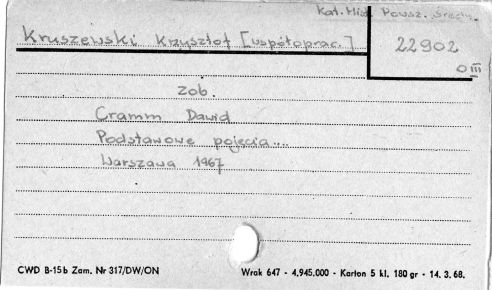 Kat. Hist. Powsz. Średn.
Kruszewski Krzysztof [współoprac.]
22902
O III
zob.
Cramm Dawid
Podstawowe pojęcia...
Warszawa 1967
CWD B-15b Zam. Nr 317/DW/ON
Wrak 647 - 4,945.000 - Karton 5 kl. 180 gr - 14. 3. 68.